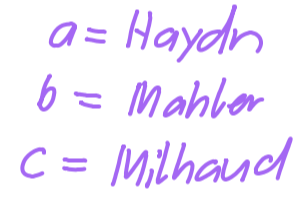 a = Haydn
b = Mahler
c = Milhaud